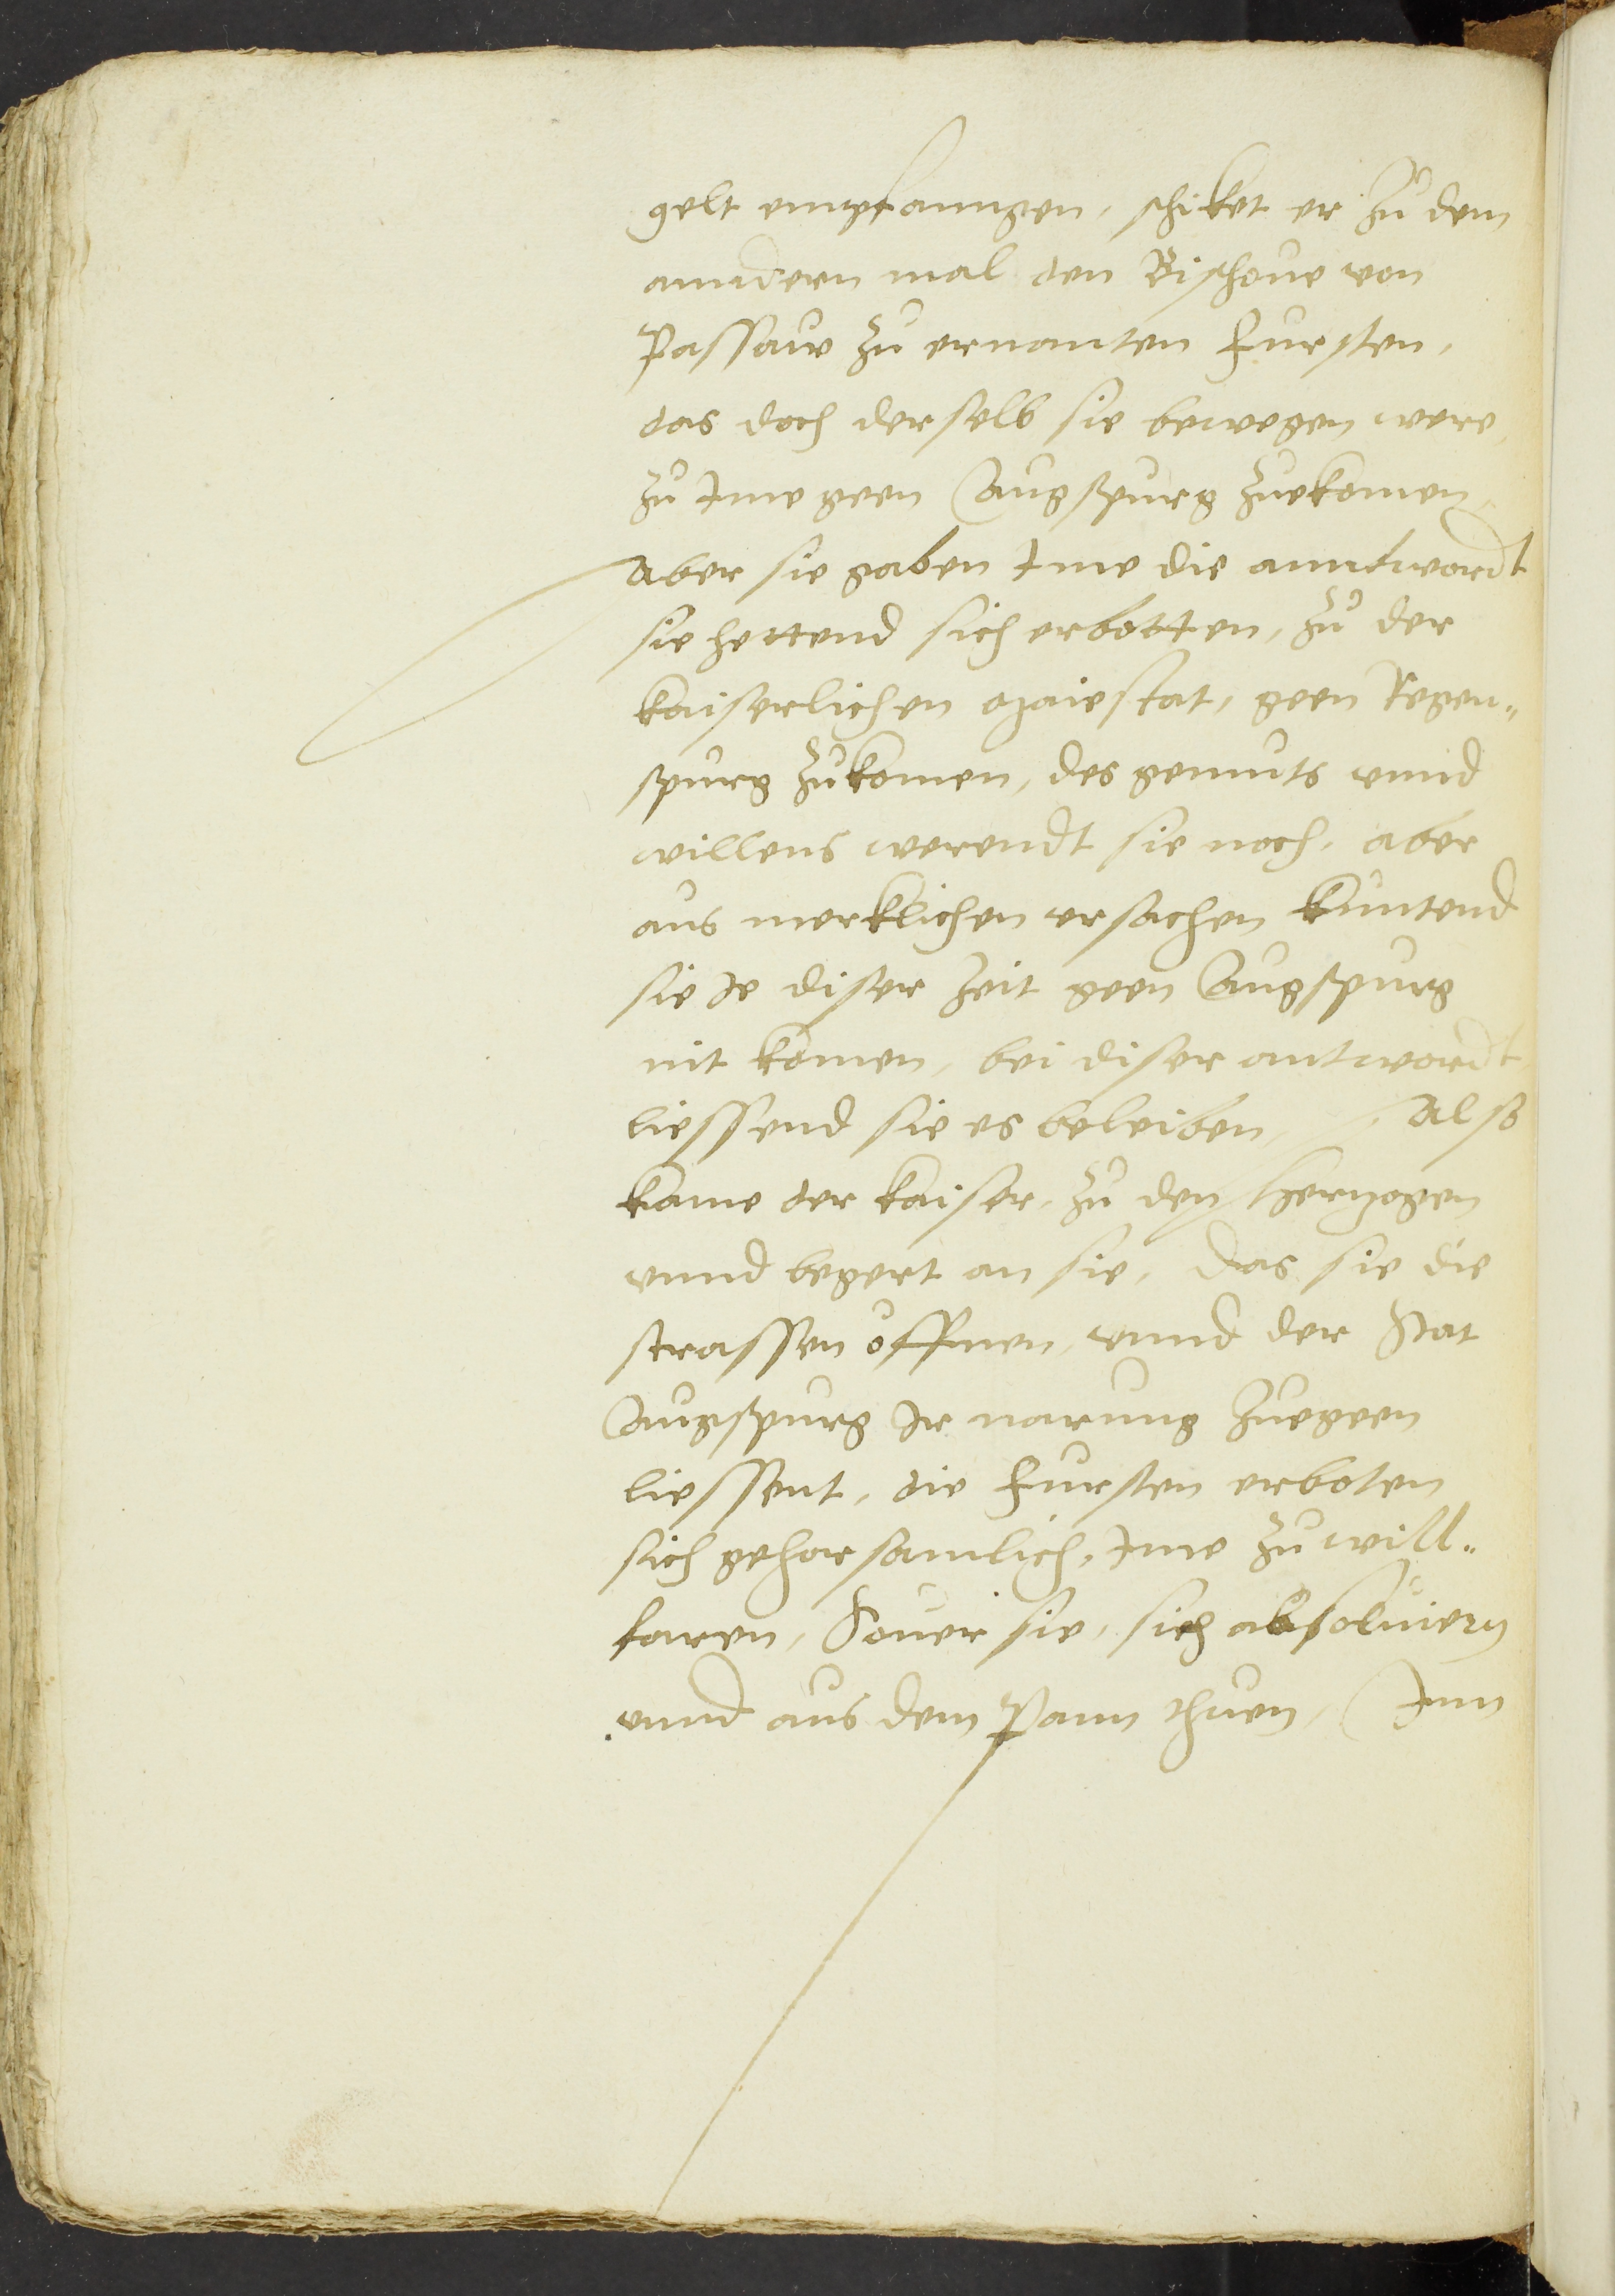 gelt empfanngen, schiket er zů dem
anndern mal den Bischoue von
Passaw zů ernanten fursten,
das doch derselb sie bewegen were,
zů Ime geen Augspurg zuekomen,
Aber sie gaben Ime die anntwordt
sie hettend sich erbotten, zů der
kaiserlichen Maiestat, geen Regen„
spurg zůkomen, des gemuts vnnd
willens werendt sie noch, aber
aus merklichen vrsachen kůntend
sie Je diser zeit geen Augspurg
nit komen, bei diser antwordt
liessend sie es beleiben, Also
kame der kaiser, zů den Hertzogen
vnnd begert an sie, das sie die
strassen öffnen, vnnd der Stat
Augspurg Ir narung zuegeen
liessent, die fursten erboten
sich gehorsamlich, Ime zů will„
faren, Souer sie, sich absoluiern
vnnd aus dem Pann thuen, Inn